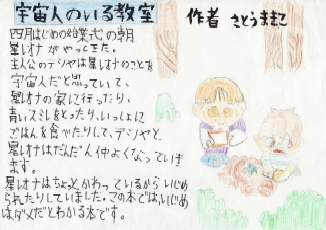 宇宙人のいる教室
作者 さとうまきこ
四月はじめの始業式の朝
星レオナがやってきた。
主人公のテツヤは星レオナのことを
宇宙人だと思っていて、
星レオナの家に行ったり、
青いスミレをとったり、いっしょに
ごはんを食べたりして、テツヤと
星レオナはだんだん仲よくなっていき
ます。
星レオナはちょっとかわっているからいじめ
られたりしていました。この本では、いじめ
はダメだとわかる本です。